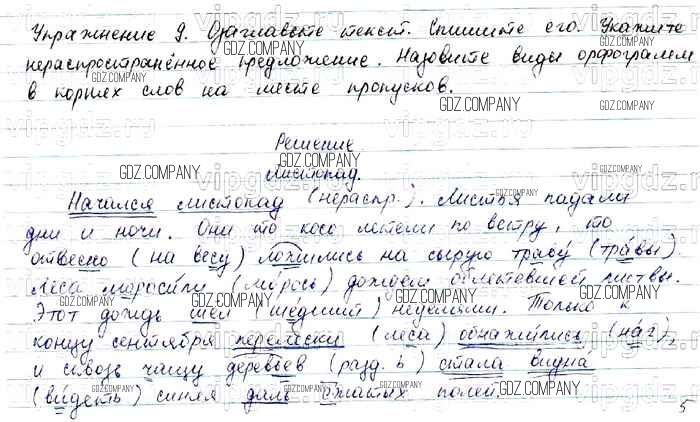 Упражнение 9. Озаглавьте текст. Спишите его. Укажите
нераспространённое предложение. Назовите виды орфограмм
в корнях слов на месте пропусков.
Решение
Листопад.
Начался листопад (нераспр.). Листья падали
дни и ночи. Они то косо летели по ветру, то
отвесно (на весу) ложились на сырую траву (травы).
Леса моросили (морось) дождём облетевшей листвы.
Этот дождь шёл (шедший) неделями. Только к
концу сентября перелески (леса) обнажились (наг),
и сквозь чащу деревьев (разд. ь) стала видна
(видеть) синяя даль сжатых полей.
5
GDZ.COMPANY
vipgdz.ru